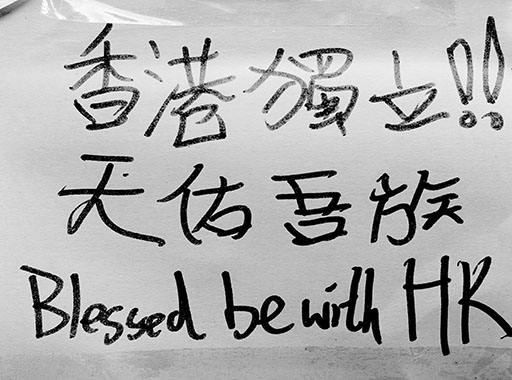 香港獨立!!
天佑吾族
Blessed be with HK